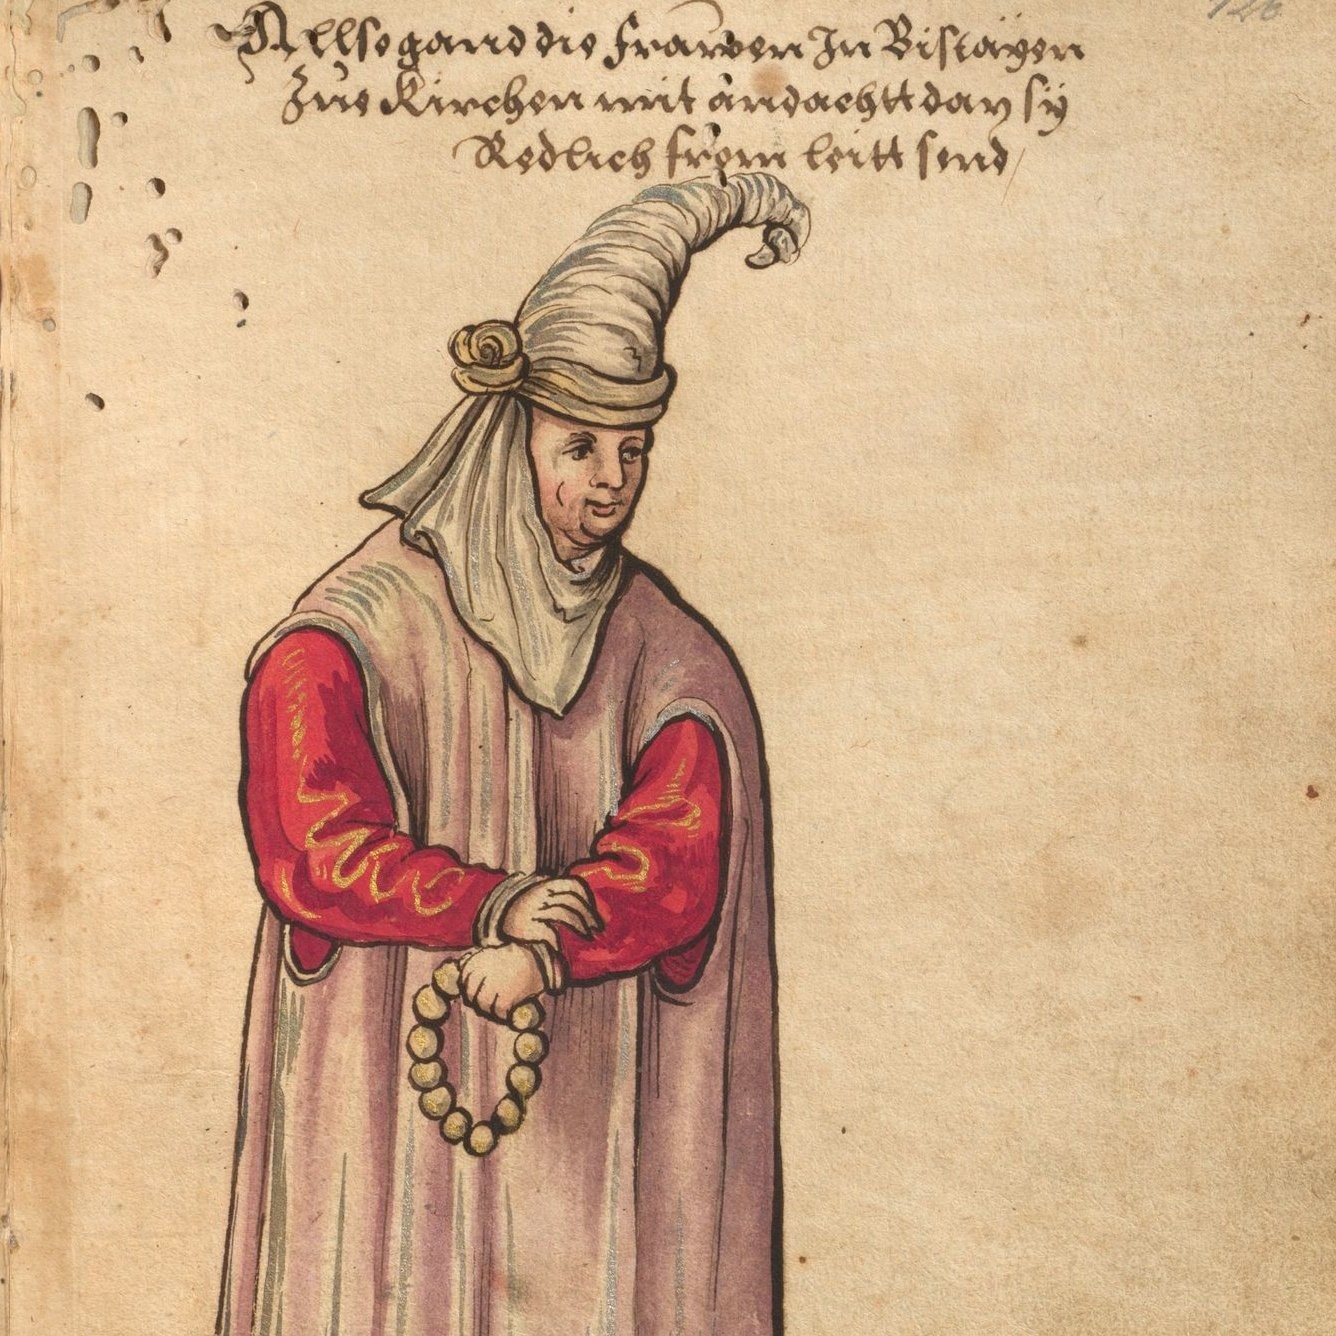 Allso gand die frawen In Biscayen
Zue Kirchen mit andachtt dan sÿ
Redlich from leitt send